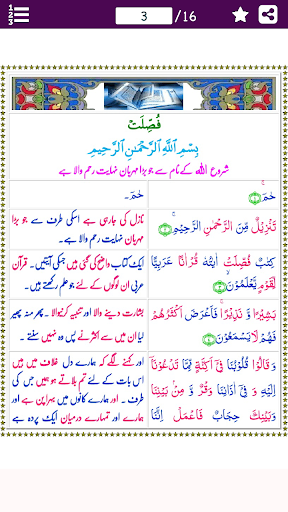 1
2
3
3 /16
فُصِّلَتْ
بِسْمِ ٱللَّهِ ٱلرَّحْمَٰنِ ٱلرَّحِيمِ
شروع اللہ کے نام سے جو بڑا مہربان نہایت رحم والا ہے
حٰمٓ ۚ
حٰمٓ۔
تَنْزِيْلٌ مِّنَ الرَّحْمٰنِ الرَّحِيْمِ ۚ
نازل کی جارہی ہے اسکی طرف سے جو بڑا
مہربان نہایت رحم والا ہے۔
كِتٰبٌ فُصِّلَتْ اٰيٰتُهٗ قُرْاٰنًا عَرَبِيًّا
لِّقَوْمٍ يَّعْلَمُوْنَ ۙ
ایک کتاب واضح کی گئی ہیں جسکی آیتیں۔ قرآن
عربی ان لوگوں کے لئے جو علم رکھتے ہیں۔
بَشِيْرًا وَّ نَذِيْرًا ۚ فَاَعْرَضَ اَكْثَرُهُمْ
فَهُمْ لَا يَسْمَعُوْنَ
بشارت دینے والا اور تنبیہ کرنیوالا۔ پھر منہ پھیر
لیا ان میں سے اکثر نے پس وہ نہیں سنتے ۔
وَ قَالُوْا قُلُوْبُنَا فِيْۤ اَكِنَّةٍ مِّمَّا تَدْعُوْنَاۤ
اِلَيْهِ وَ فِيْۤ اٰذَانِنَا وَقْرٌ وَّ مِنْۢ بَيْنِنَا
وَبَيْنِكَ حِجَابٌ فَاعْمَلْ اِنَّنَا
اور کہنے لگے کہ ہمارے دل غلاف میں ہیں
اس بات کے لئے تم بلاتے ہو ہمیں جس کی
طرف ۔ اور ہمارے کانوں میں بہراپن ہے اور
ہمارے اور تمہارے درمیان ایک پردہ ہے